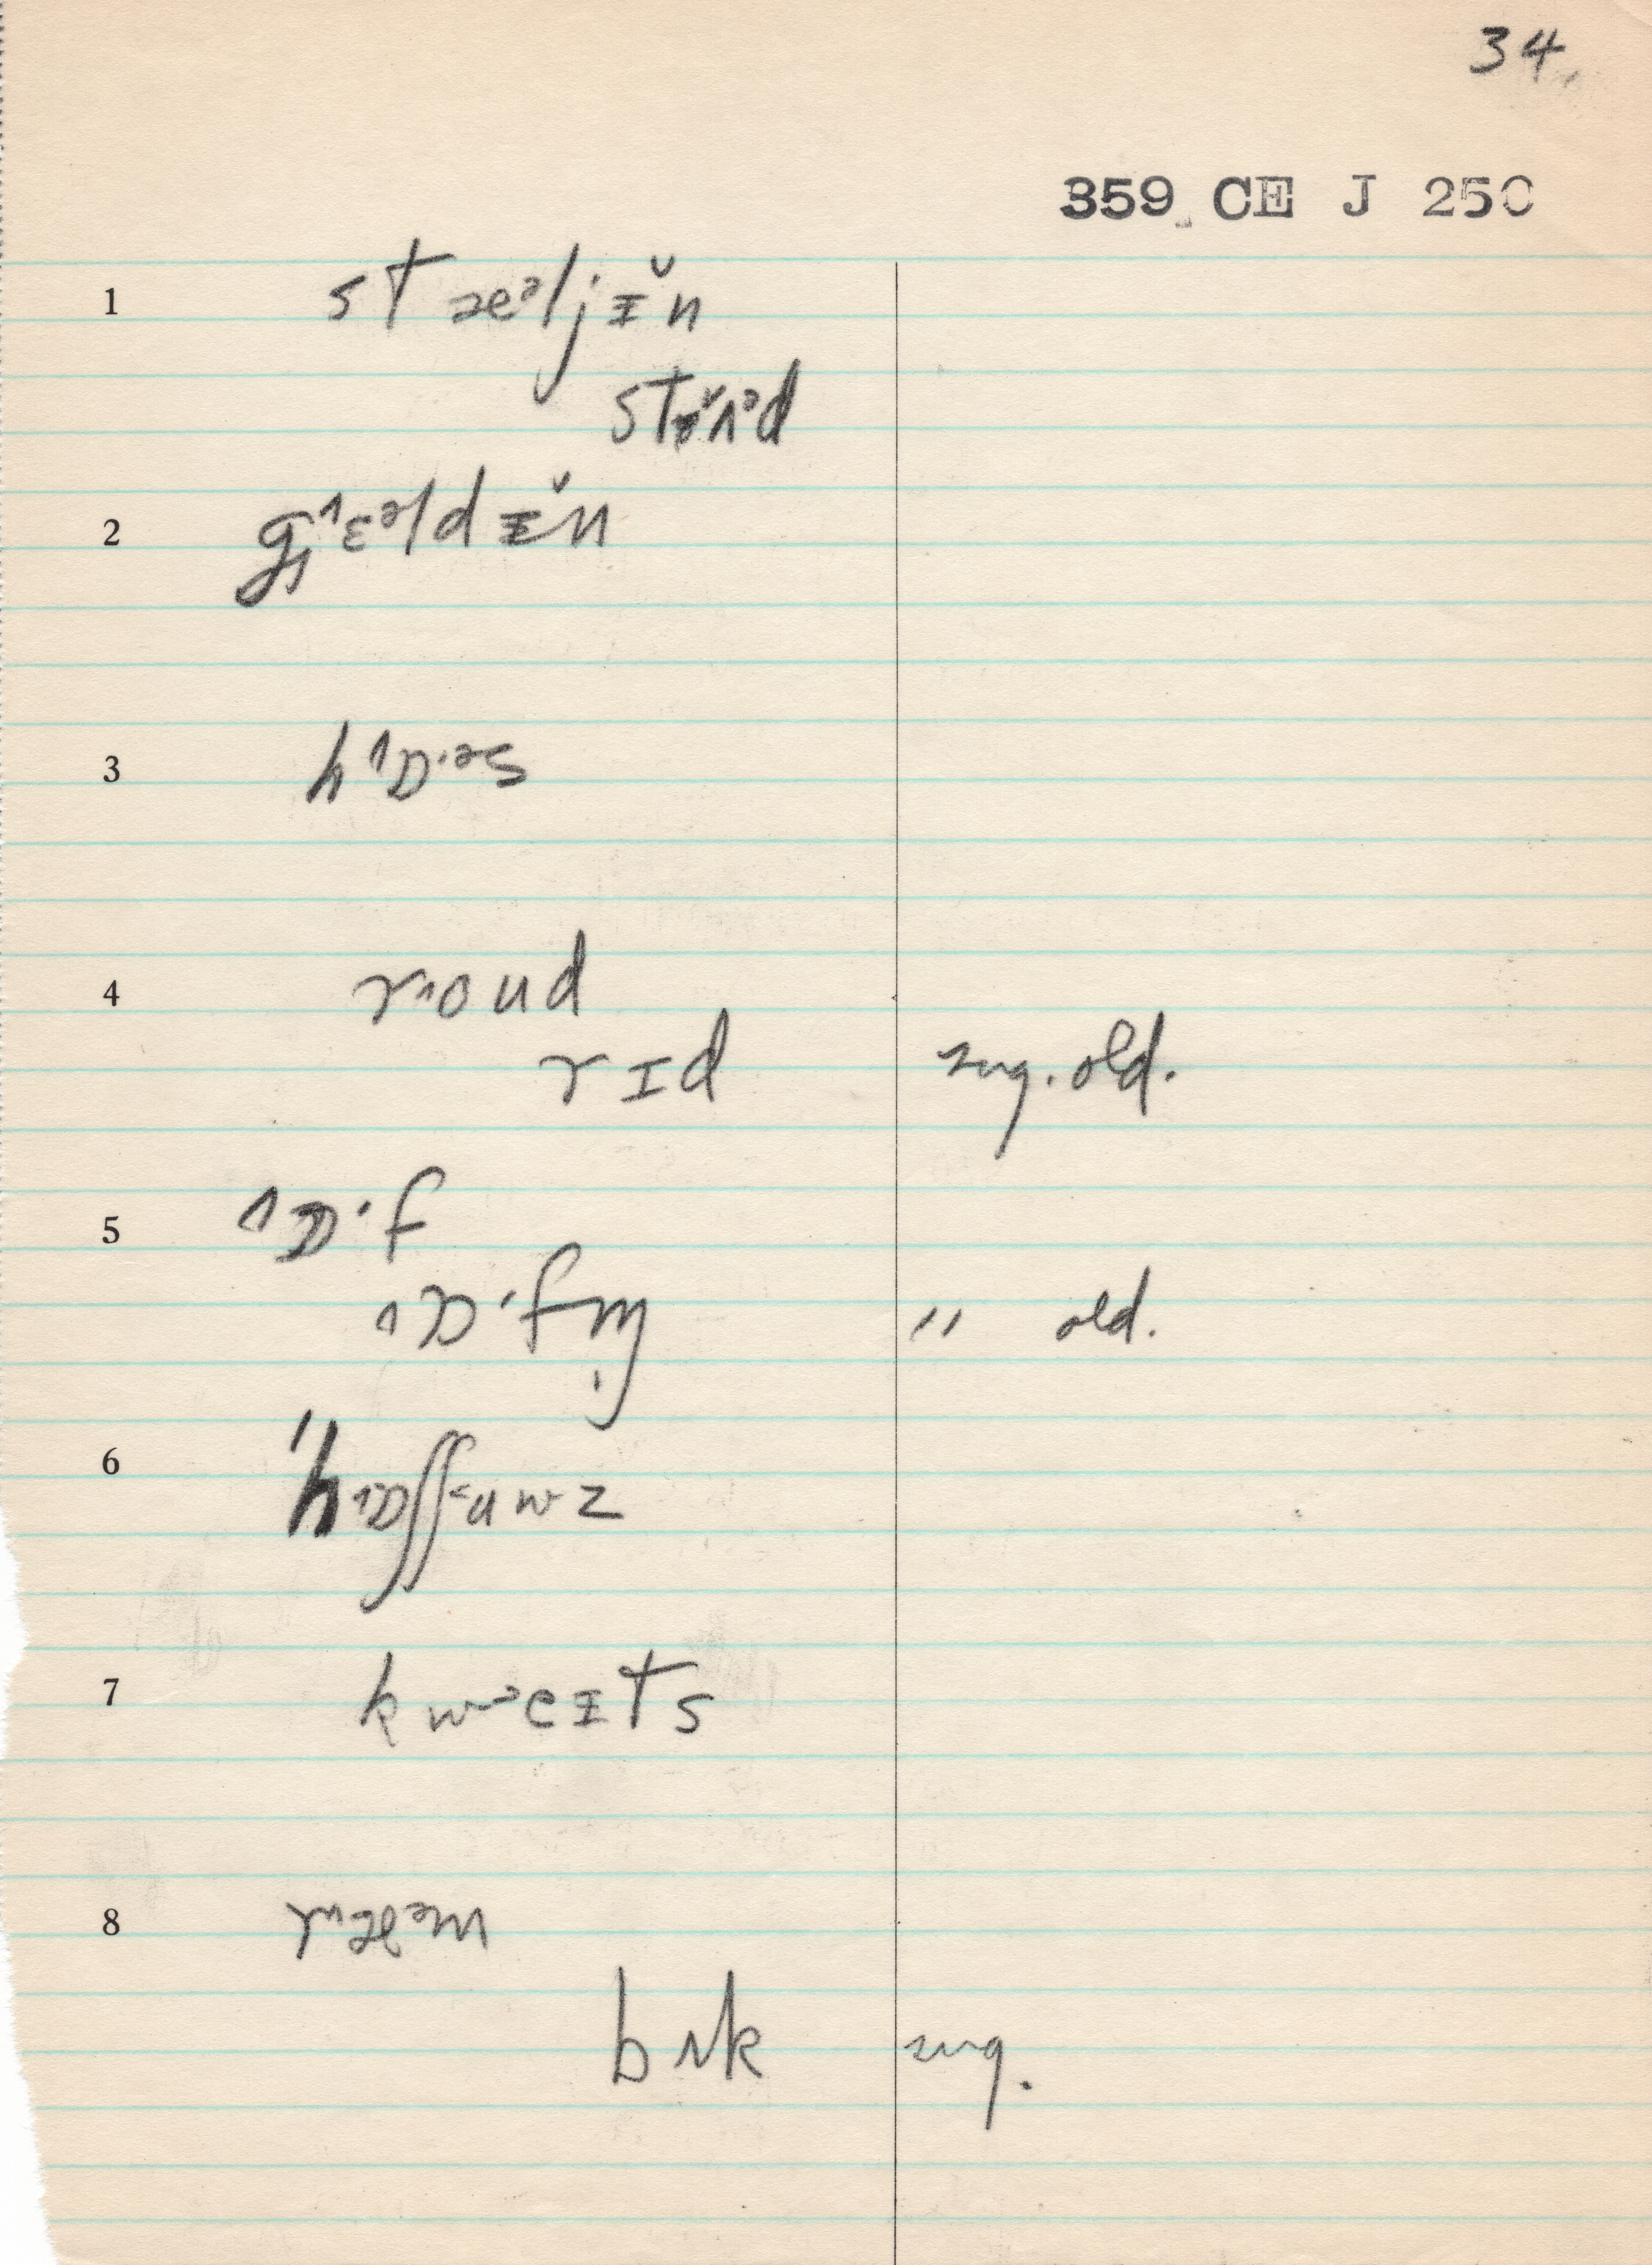 34.
359 CE J 250
1 stæᵊljɪ̆n
stɚ̆ᴧᵊd
2 gᶺɛᵊldɪ̆n
3 hᶺɒ·ᵊs
4 r^oud
rɪd sug. old.
5 ^ɒ·f
^ɒ·fm̩ " old.
6 'h^ɒʃʃ˂uwz
7 kw˃eɪts
8 r^æᵊm
bʌk sug.